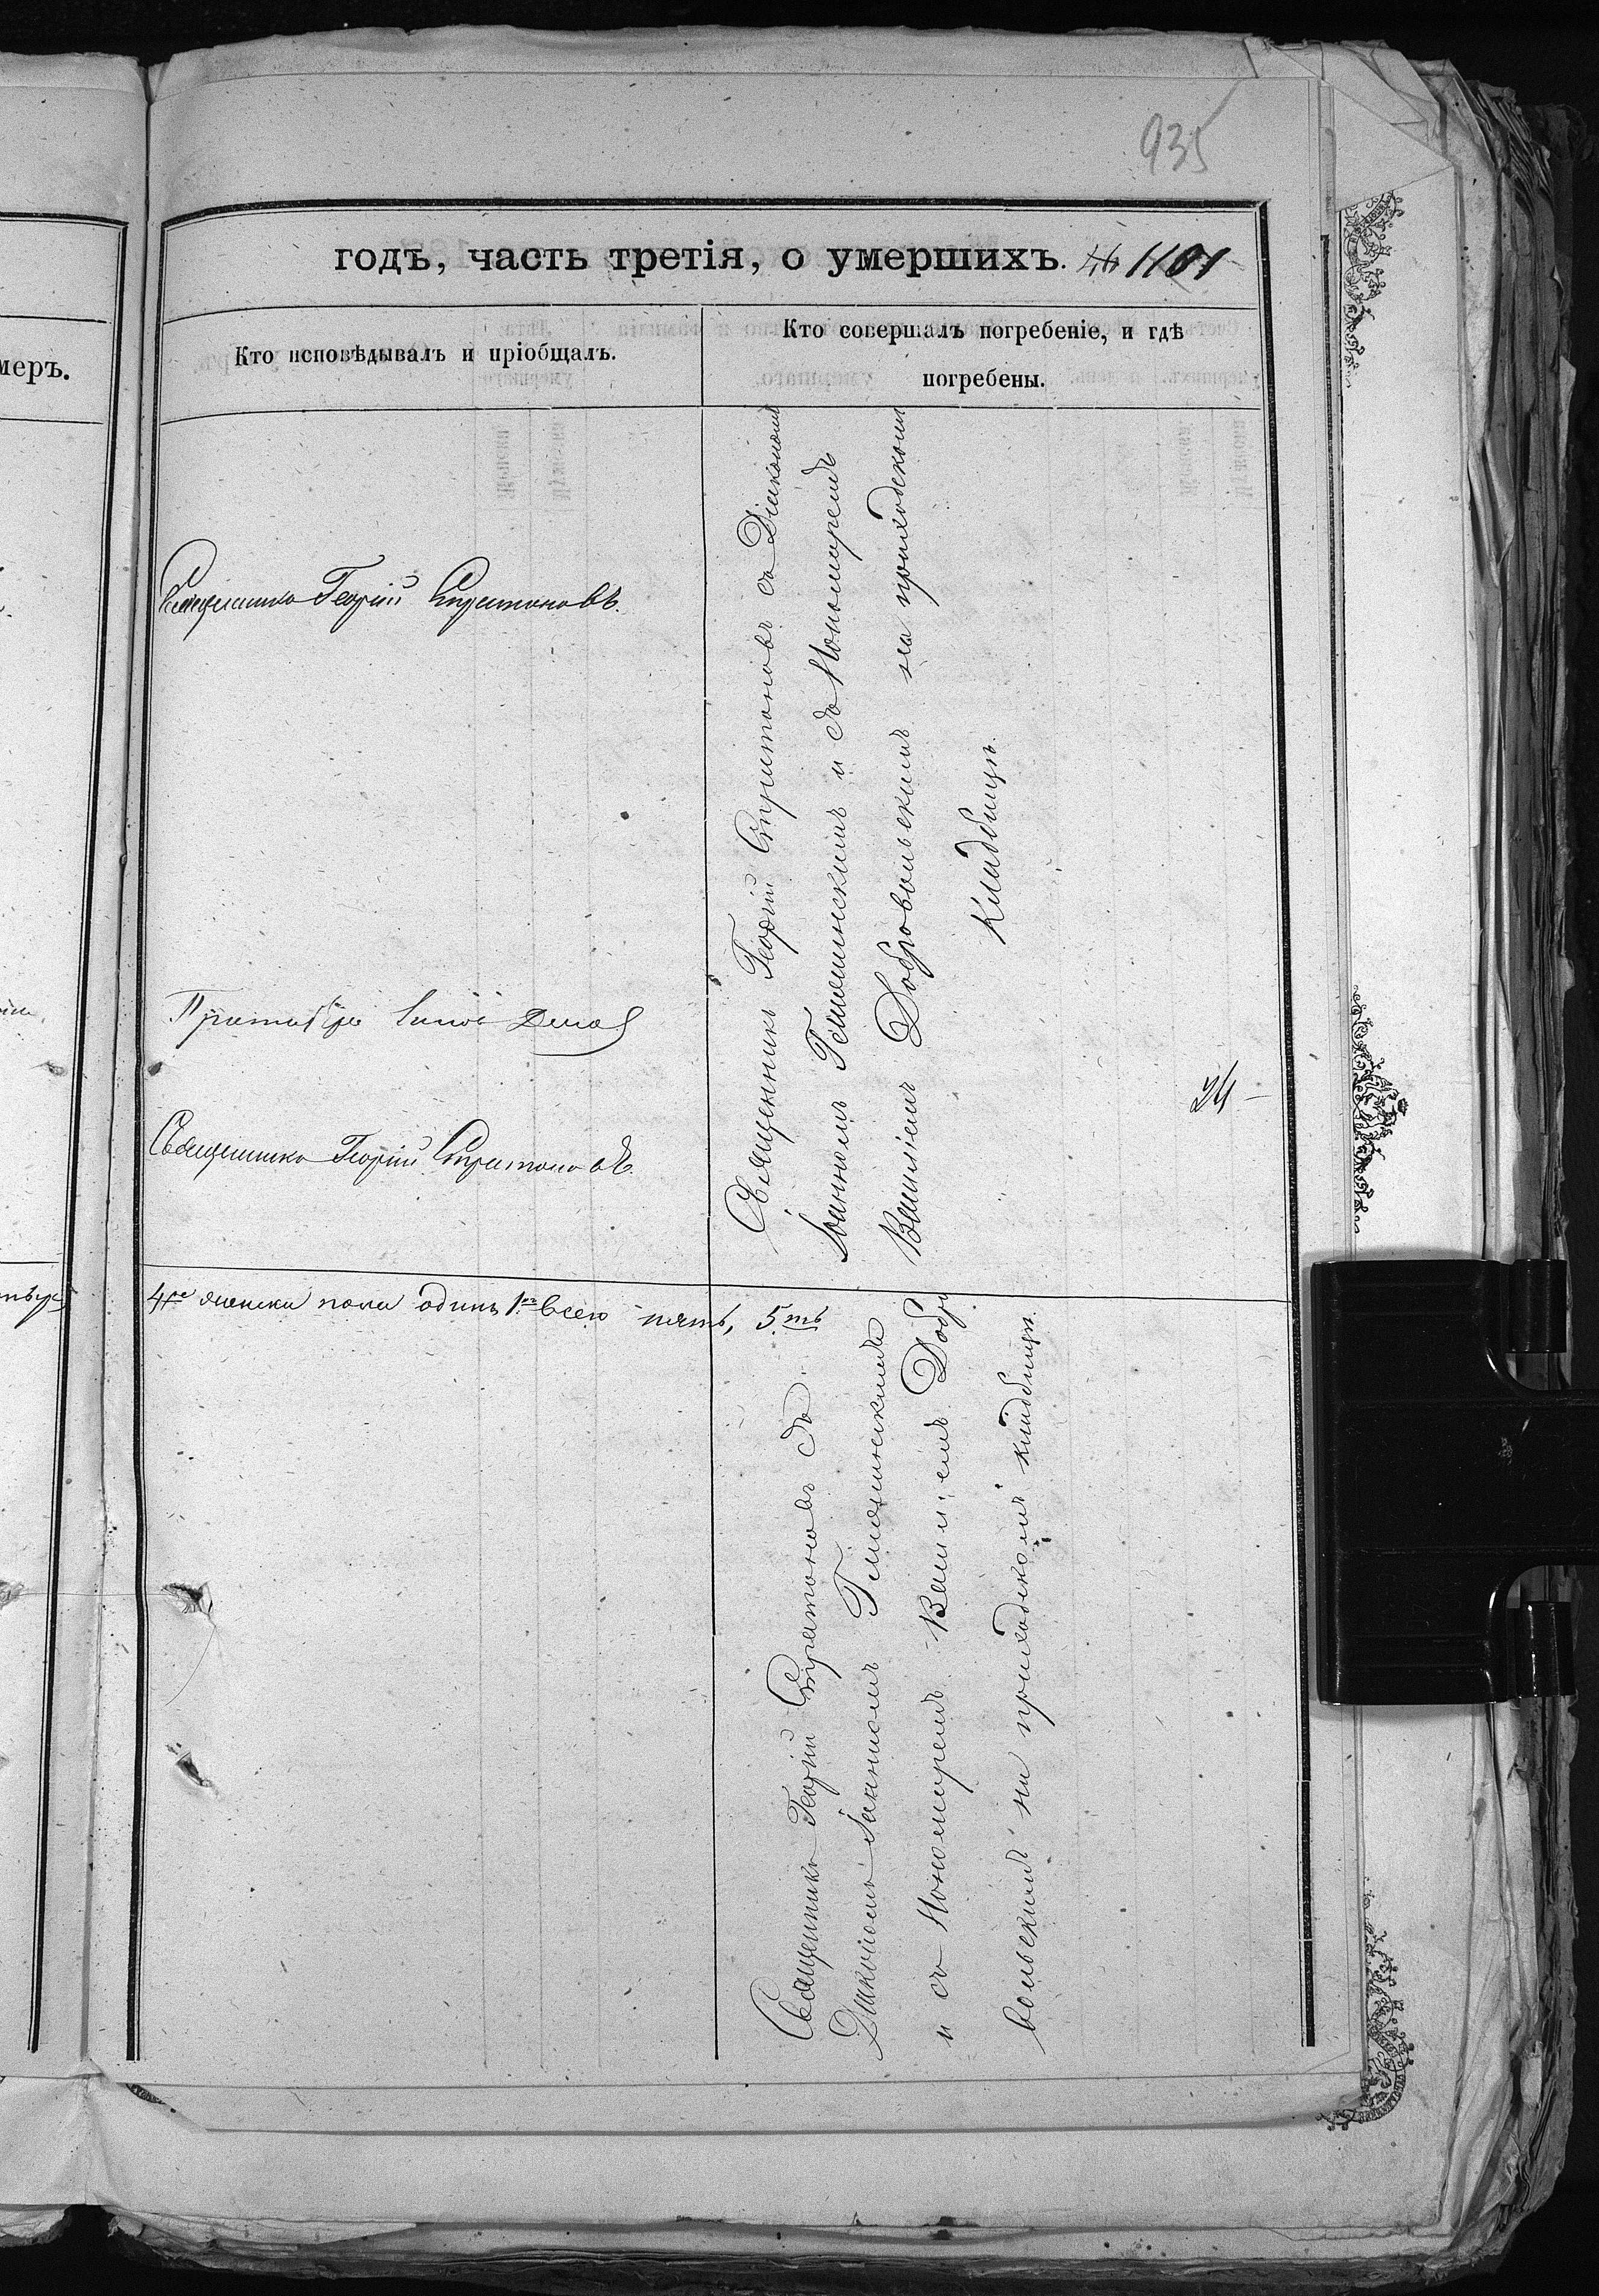 935
годъ, часть третія, о умершихъ. 1101
меръ.
Кто исповѣдывалъ и пріобщалъ.
Кто совершалъ погребеніе, и гдѣ
погребены.
Священникъ Георгій Стратоновъ.
Священникъ Георгій Стратоновъ.
Священникъ Георгій Стратоновъ съ Діакономъ
Іоанномъ и съ Пономаремъ
Василіемъ Добровольскимъ на приходскомъ
кладбищѣ.
24
4ре женска пола одинъ 1нъ Всего пять, 5ть
Священникъ Георгій Стратоновъ съ
Діакономъ Іоанномъ
и съ Пономаремъ Василіемъ Добро
вольскимъ на приходскомъ кладбищѣ.